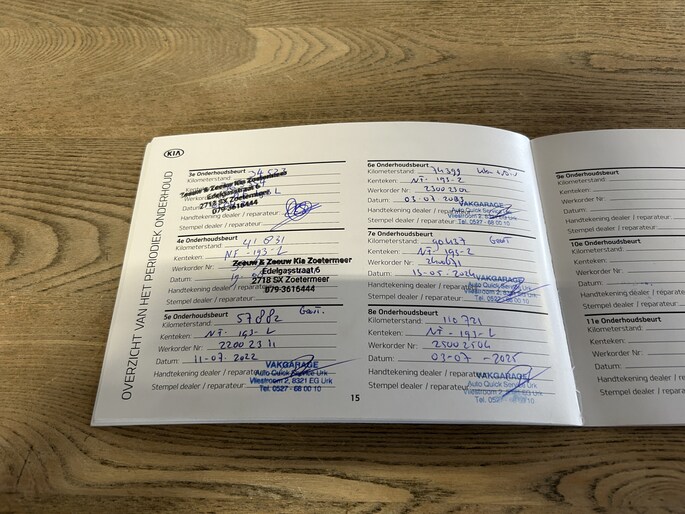 KIA
OVERZICHT VAN HET PERIODIEK ONDERHOUD
3e Onderhoudsbeurt
Kilometerstand:
Kenteken:
Werkorder Nr.
Datum:
Zeeuw & Zeeuw Kia Zoetermeer
Edelgasstraat 6
2718 SX Zoetermeer
079-3616444
Handtekening dealer / reparateur:
Stempel dealer / reparateur:
4e Onderhoudsbeurt
Kilometerstand: 41831
Kenteken: NF-193-L
Werkorder Nr.
Datum:
Zeeuw & Zeeuw Kia Zoetermeer
Edelgasstraat 6
2718 SX Zoetermeer
079-3616444
Handtekening dealer / reparateur:
Stempel dealer / reparateur:
5e Onderhoudsbeurt
Kilometerstand: 57882
Kenteken: NF-193-L
Werkorder Nr. 22002311
Datum: 11-07-2022
Handtekening dealer / reparateur:
Stempel dealer / reparateur:
VAKGARAGE
Auto Quick Service Urk
Vliestroom 2, 8321 EG Urk
Tel. 0527 - 68 00 10
15
6e Onderhoudsbeurt
Kilometerstand: 74399
Kenteken: NF-193-L
Werkorder Nr. 23002302
Datum: 03-07-2023
Handtekening dealer / reparateur:
Stempel dealer / reparateur:
VAKGARAGE
Auto Quick Service Urk
Vliestroom 2, 8321 EG Urk
Tel. 0527 - 68 00 10
7e Onderhoudsbeurt
Kilometerstand: 90437
Kenteken: NF-193-L
Werkorder Nr.
Datum: 13-05-2024
Handtekening dealer / reparateur:
Stempel dealer / reparateur:
VAKGARAGE
Auto Quick Service Urk
Vliestroom 2, 8321 EG Urk
Tel. 0527 - 68 00 10
8e Onderhoudsbeurt
Kilometerstand: 110721
Kenteken: NF-193-L
Werkorder Nr. 25002506
Datum: 03-07-2025
Handtekening dealer / reparateur:
Stempel dealer / reparateur:
VAKGARAGE
Auto Quick Service Urk
Vliestroom 2, 8321 EG Urk
Tel. 0527 - 68 00 10
9e Onderhoudsbeurt
Kilometerstand:
Kenteken:
Werkorder Nr.
Datum:
Handtekening dealer /
Stempel dealer / repar
10e Onderhoudsbeurt
Kilometerstand:
Kenteken:
Werkorder Nr.
Datum:
Handtekening dealer / r
Stempel dealer / repar
11e Onderhoudsbeurt
Kilometerstand:
Kenteken:
Werkorder Nr.
Datum:
Handtekening dealer / re
Stempel dealer / reparat